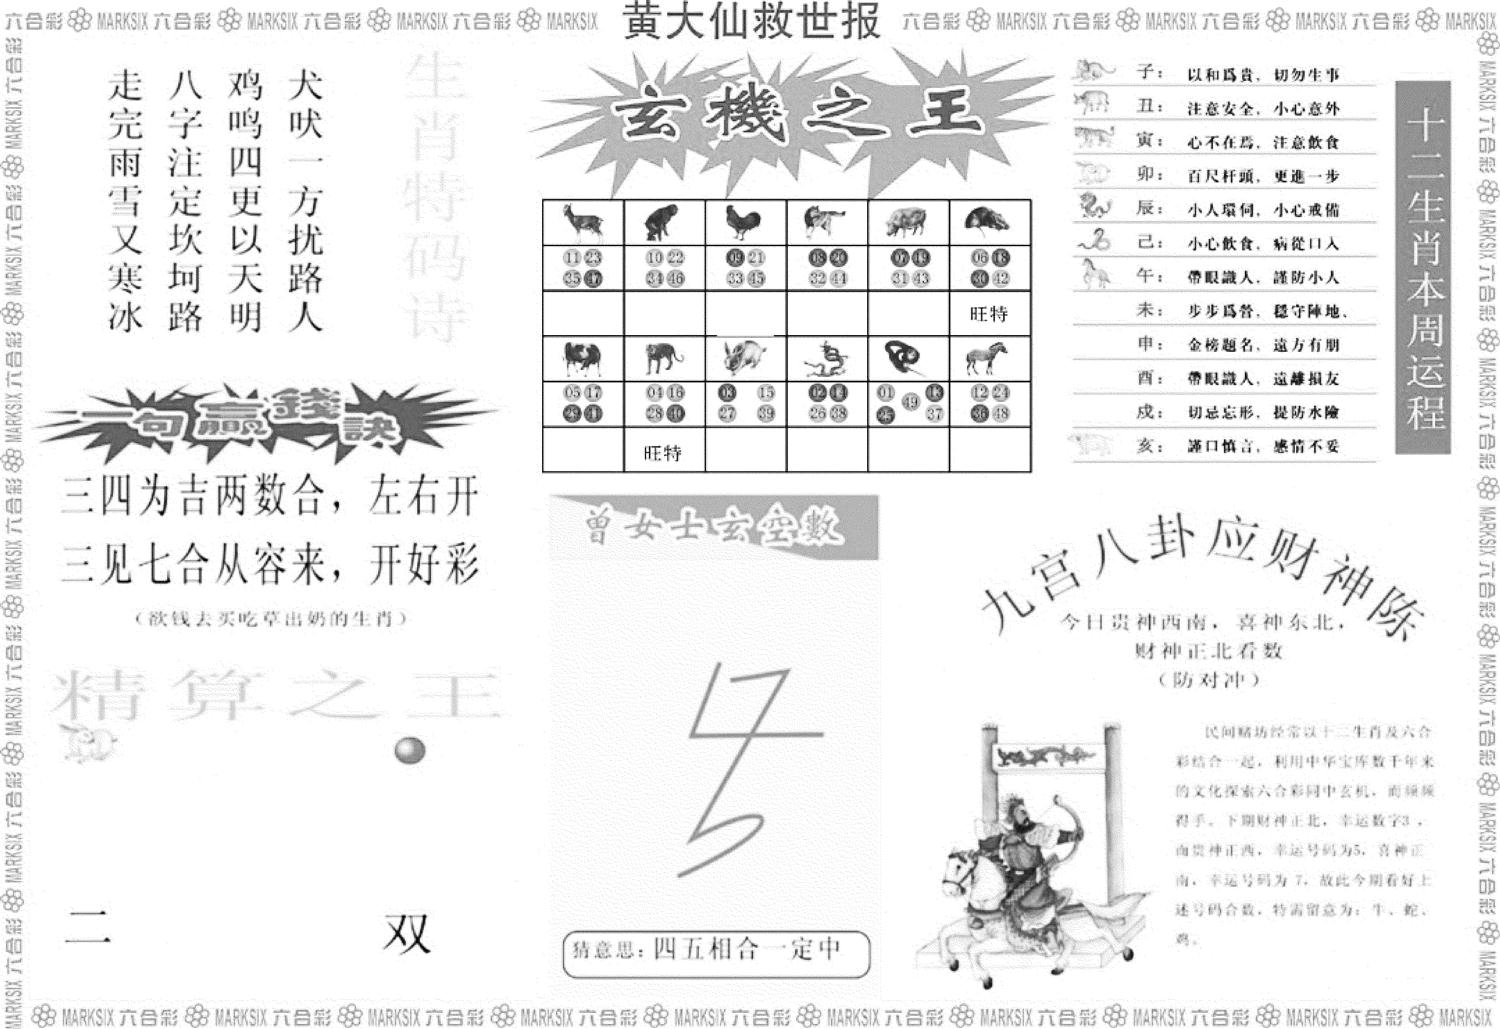 六合彩 MARKSIX 六合彩 MARKSIX 六合彩 MARKSIX 六合彩 MARKSIX
黄大仙救世报
六合彩 MARKSIX 六合彩 MARKSIX 六合彩 MARKSIX 六合彩 MARKSIX
生肖特码诗
犬吠一方扰路人
鸡鸣四更以天明
八字注定坎坷路
走完雨雪又寒冰
一句赢錢訣
三四为吉两数合，左右开
三见七合从容来，开好彩
（欲钱去买吃草出奶的生肖）
精算之王
二 双
玄機之王
11 23 10 22 09 21 08 20 07 19 06 18
35 47 34 46 33 45 32 44 31 43 30 42
旺特
05 17 04 16 03 15 02 14 01 13 12 24
29 41 28 40 27 39 26 38 25 49 37 36 48
旺特
曾女士玄空數
猜意思：四五相合一定中
十二生肖本周运程
子：以和爲貴，切勿生事
丑：注意安全，小心意外
寅：心不在焉，注意飲食
卯：百尺杆頭，更進一步
辰：小人環伺，小心戒備
己：小心飲食，病從口入
午：帶眼識人，謹防小人
未：步步爲營，穩守陣地、
申：金榜題名，遠方有朋
酉：帶眼識人，遠離損友
戍：切忌忘形，提防水險
亥：謹口慎言，感情不妥
九宫八卦应财神陈
今日贵神西南，喜神东北，
财神正北看数
（防对冲）
民间赌坊经常以十二生肖及六合
彩结合一起，利用中华宝库数千年来
的文化探索六合彩同中玄机，而频频
得手。下期财神正北，幸运数字3，
而贵神正西，幸运号码为5，喜神正
南，幸运号码为 7，故此今期看好上
述号码合数，特需留意为：牛、蛇、
鸡。
MARKSIX 六合彩 MARKSIX 六合彩 MARKSIX 六合彩 MARKSIX 六合彩 MARKSIX 六合彩 MARKSIX 六合彩 MARKSIX 六合彩 MARKSIX 六合彩 MARKSIX 六合彩 MARKSIX